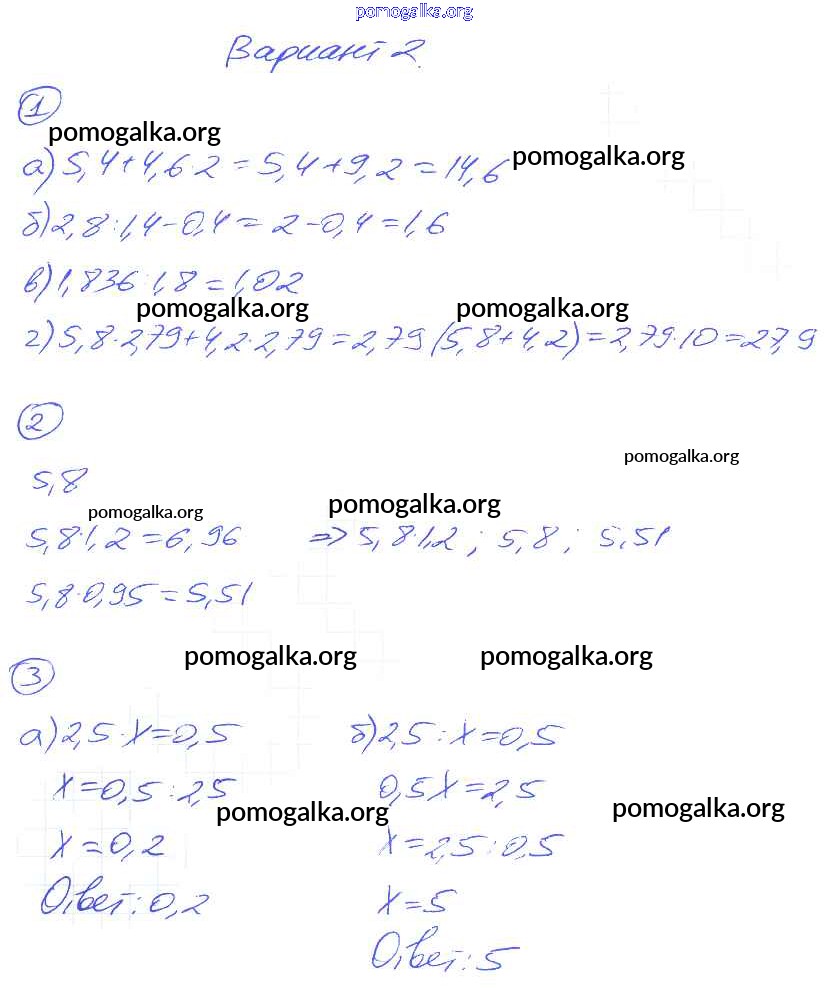 pomogalka.org
Вариант 2.
1
pomogalka.org
pomogalka.org
а) 5,4+4,6·2=5,4+9,2=14,6
б) 2,8:1,4-0,4=2-0,4=1,6
в) 1,836:1,8=1,02
pomogalka.org pomogalka.org
г) 5,8·2,79+4,2·2,79=2,79(5,8+4,2)=2,79·10=27,9
2
pomogalka.org
5,8
pomogalka.org pomogalka.org
5,8·1,2=6,96 => 5,8·1,2; 5,8; 5,51
5,8·0,95=5,51
pomogalka.org pomogalka.org
3
а) 2,5·x=0,5 б) 2,5:x=0,5
x=0,5:2,5 0,5x=2,5
pomogalka.org pomogalka.org
x=0,2 x=2,5:0,5
Ответ: 0,2 x=5
Ответ: 5